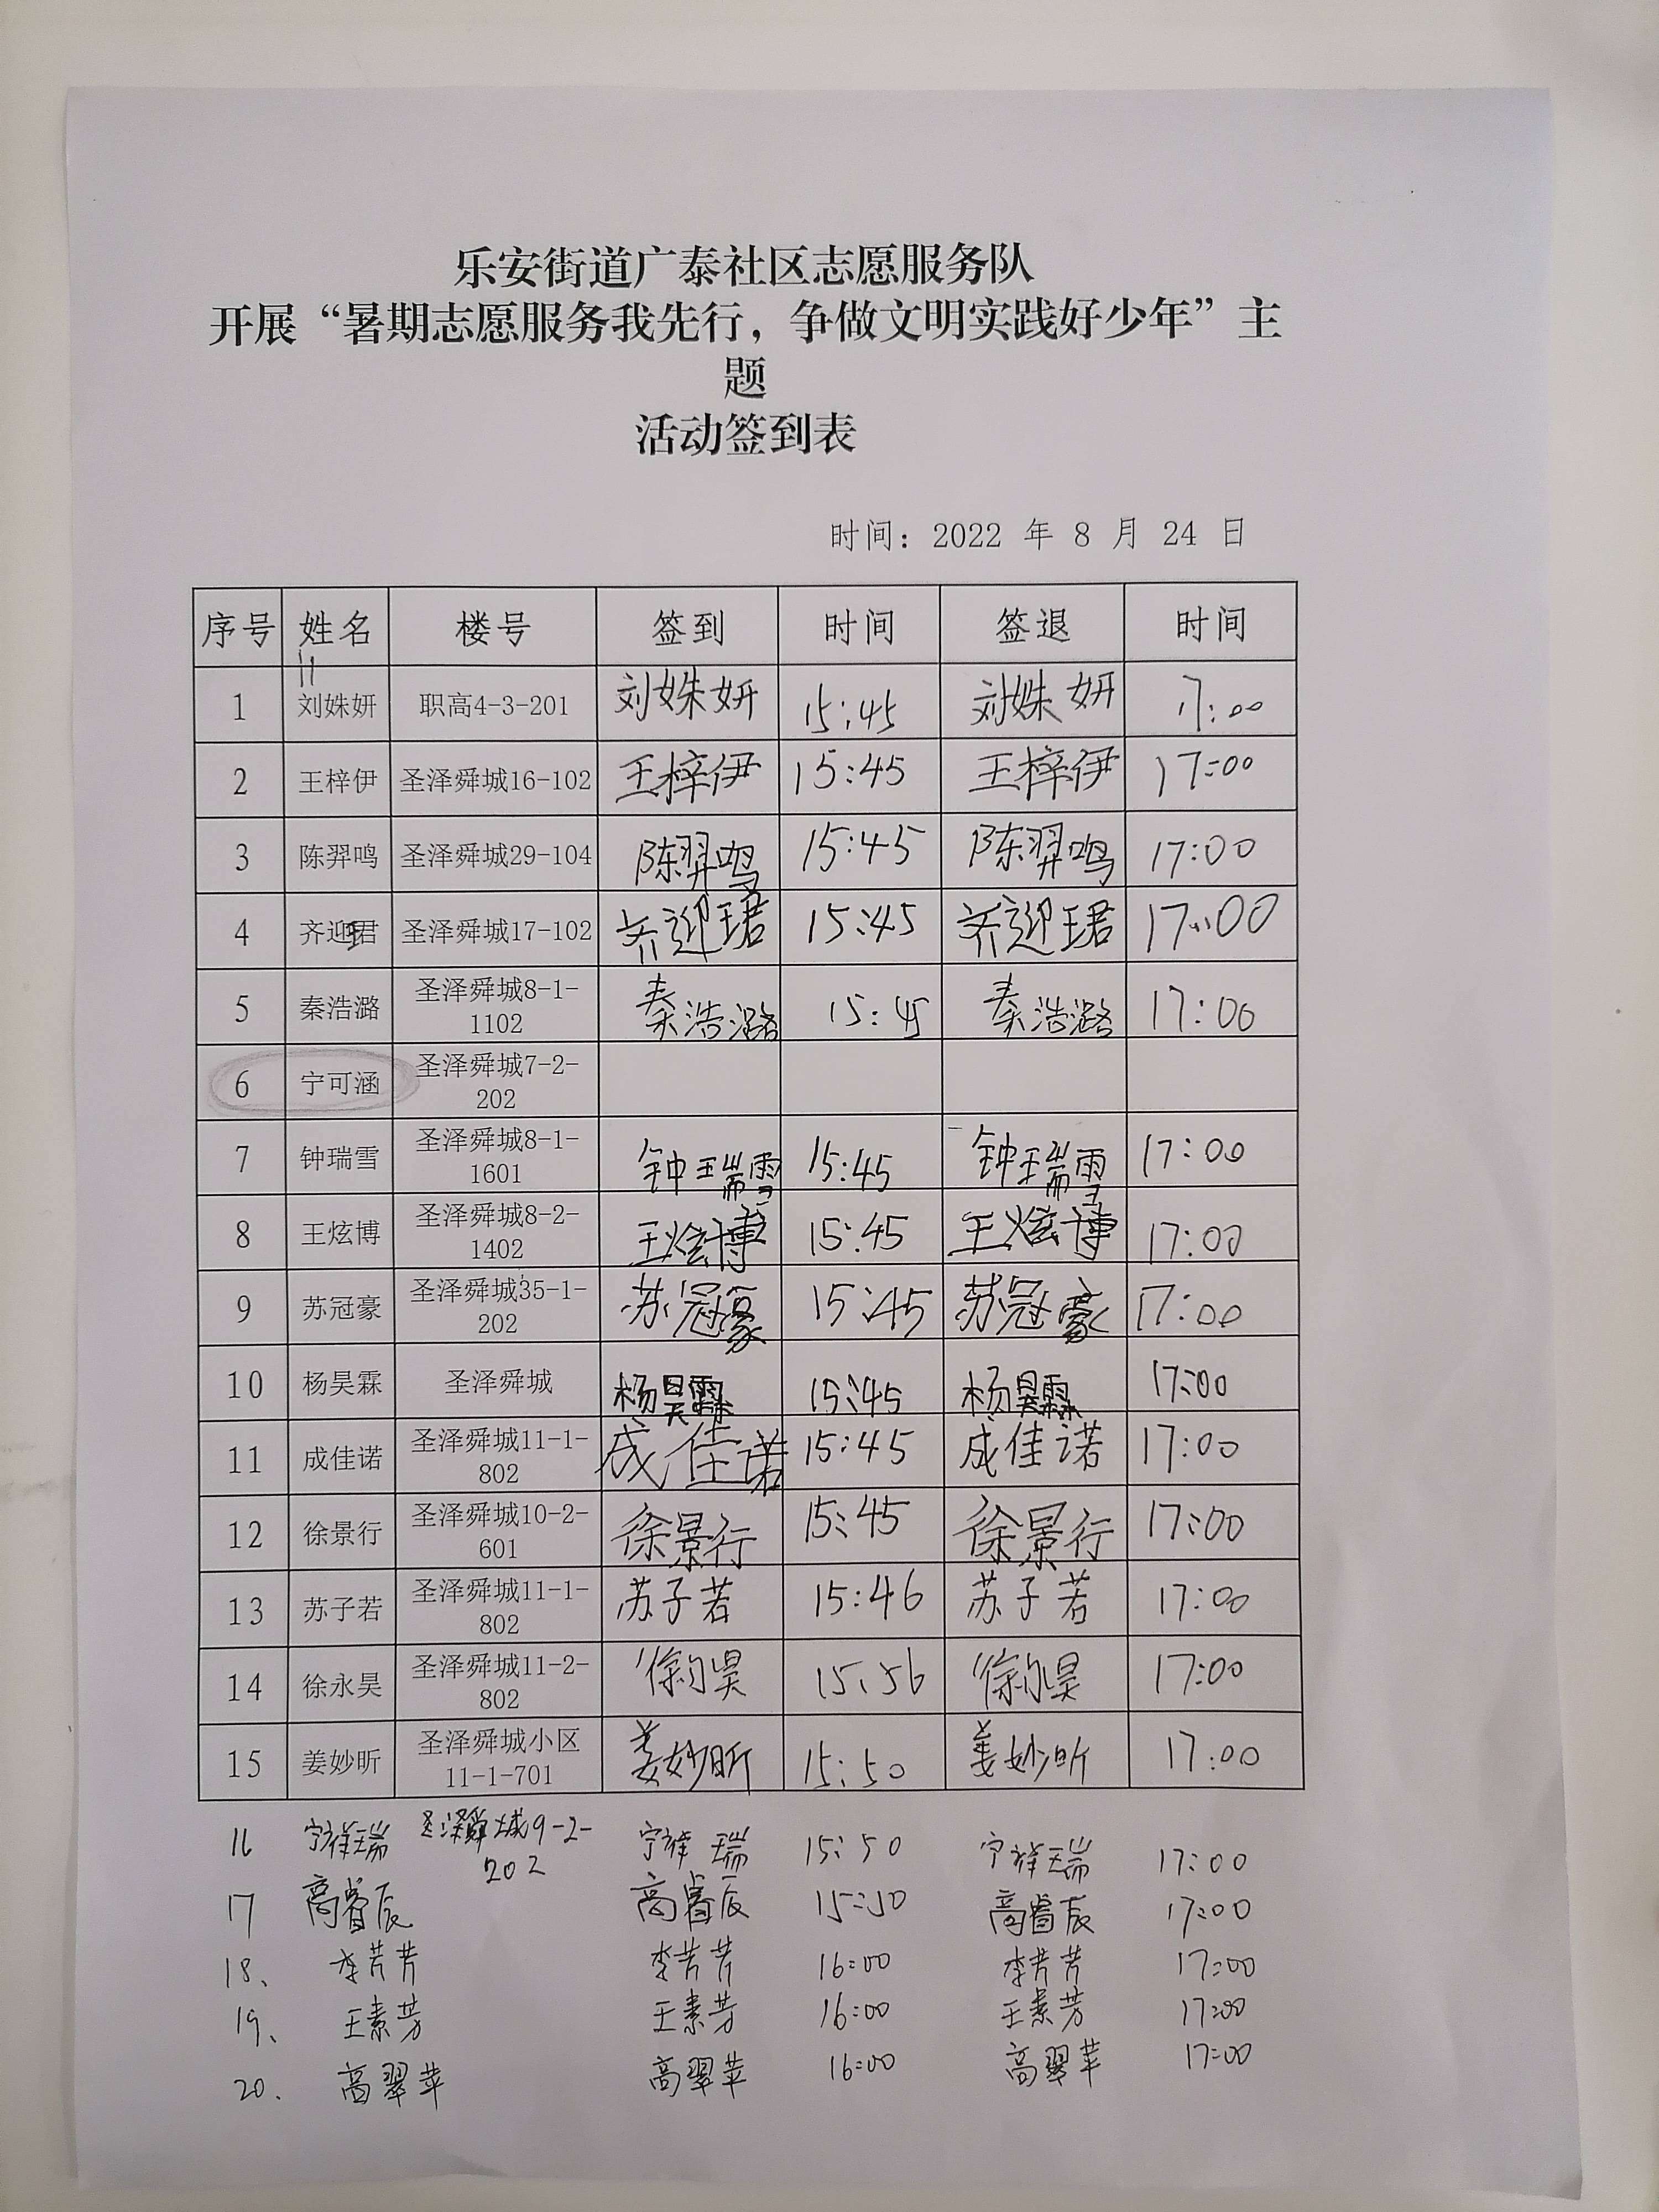 乐安街道广泰社区志愿服务队
开展“暑期志愿服务我先行，争做文明实践好少年”主
题
活动签到表
时间：2022 年 8 月 24 日
序号 姓名 楼号 签到 时间 签退 时间
1 刘姝妍 职高4-3-201 刘姝妍 15:45 刘姝妍 17:00
2 王梓伊 圣泽舜城16-102 王梓伊 15:45 王梓伊 17:00
3 陈羿鸣 圣泽舜城29-104 陈羿鸣 15:45 陈羿鸣 17:00
4 齐迎珺 圣泽舜城17-102 齐迎珺 15:45 齐迎珺 17:00
5 秦浩潞 圣泽舜城8-1-
1102 秦浩潞 15:45 秦浩潞 17:00
6 宁可涵 圣泽舜城7-2-
202
7 钟瑞雪 圣泽舜城8-1-
1601 钟瑞雪 15:45 钟瑞雪 17:00
8 王炫博 圣泽舜城8-2-
1402 王炫博 15:45 王炫博 17:00
9 苏冠豪 圣泽舜城35-1-
202 苏冠豪 15:45 苏冠豪 17:00
10 杨昊霖 圣泽舜城 杨昊霖 15:45 杨昊霖 17:00
11 成佳诺 圣泽舜城11-1-
802 成佳诺 15:45 成佳诺 17:00
12 徐景行 圣泽舜城10-2-
601 徐景行 15:45 徐景行 17:00
13 苏子若 圣泽舜城11-1-
802 苏子若 15:46 苏子若 17:00
14 徐永昊 圣泽舜城11-2-
802 徐永昊 15:56 徐永昊 17:00
15 姜妙昕 圣泽舜城小区
11-1-701 姜妙昕 15:50 姜妙昕 17:00
16 宁祥瑞 圣泽舜城9-2-
202 宁祥瑞 15:50 宁祥瑞 17:00
17 高睿辰 高睿辰 15:50 高睿辰 17:00
18、 李芳芳 李芳芳 16:00 李芳芳 17:00
19、 王素芳 王素芳 16:00 王素芳 17:00
20、 高翠苹 高翠苹 16:00 高翠苹 17:00